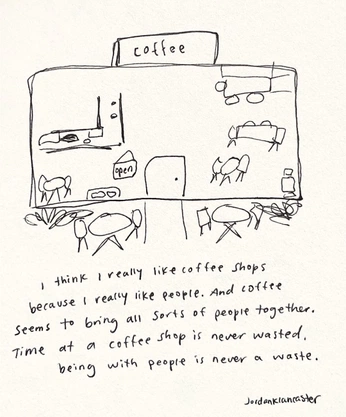 coffee
open
I think I really like coffee shops
because I really like people. And coffee
seems to bring all sorts of people together.
Time at a coffee shop is never wasted,
being with people is never a waste.
jordanklancaster